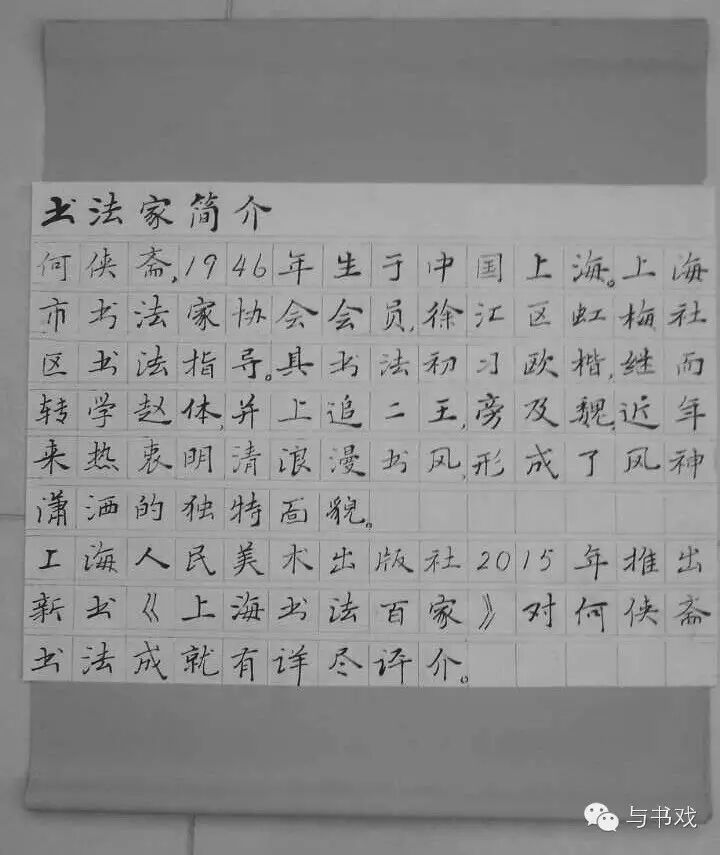 书法家简介
何侠斋,1946年生于中国上海。上海
市书法家协会会员,徐江区虹梅社
区书法指导。其书法初习欧楷,继而
转学赵体,并上追二王,旁及魏,近年
来热衷明清浪漫书风,形成了风神
潇洒的独特面貌。
上海人民美术出版社2015年推出
新书《上海书法百家》对何侠斋
书法成就有详尽评介。
与书戏